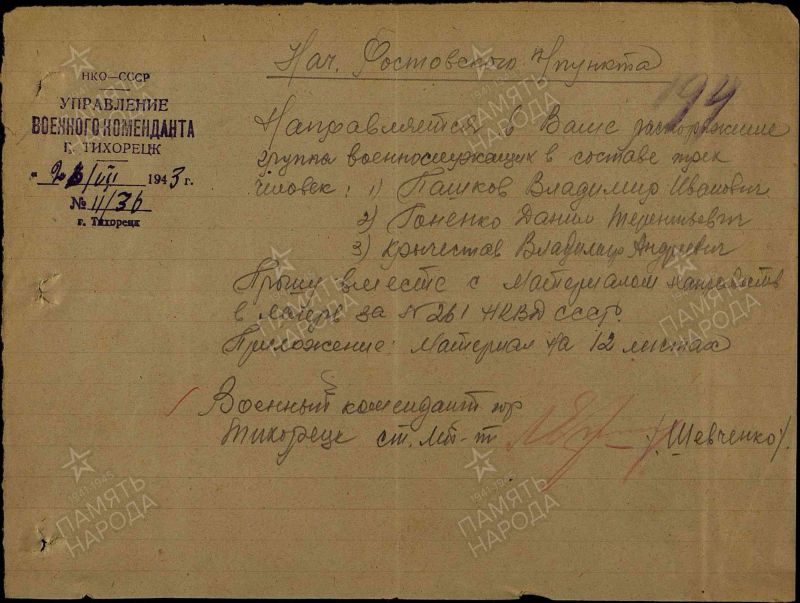 Нач. Ростовского п/пункта
194
НКО—СССР
УПРАВЛЕНИЕ
ВОЕННОГО КОМЕНДАНТА
Г. ТИХОРЕЦК
"26/VII 1943 г.
№ 11/36
г. Тихорецк
Направляется в Ваше распоряжение
группа военнослужащих в составе трех
человек: 1) Пашков Владимир Иванович
2) Гоненко Данил Терентьевич
3) Владимир Андреевич
Прошу вместе с материалом направить
в лагерь за №261 НКВД СССР.
Приложение: Материал на 12 листах
Военный комендант гор
Тихорецк ст. л-т /Шевченко/.
ПАМЯТЬ НАРОДА
1941-1945